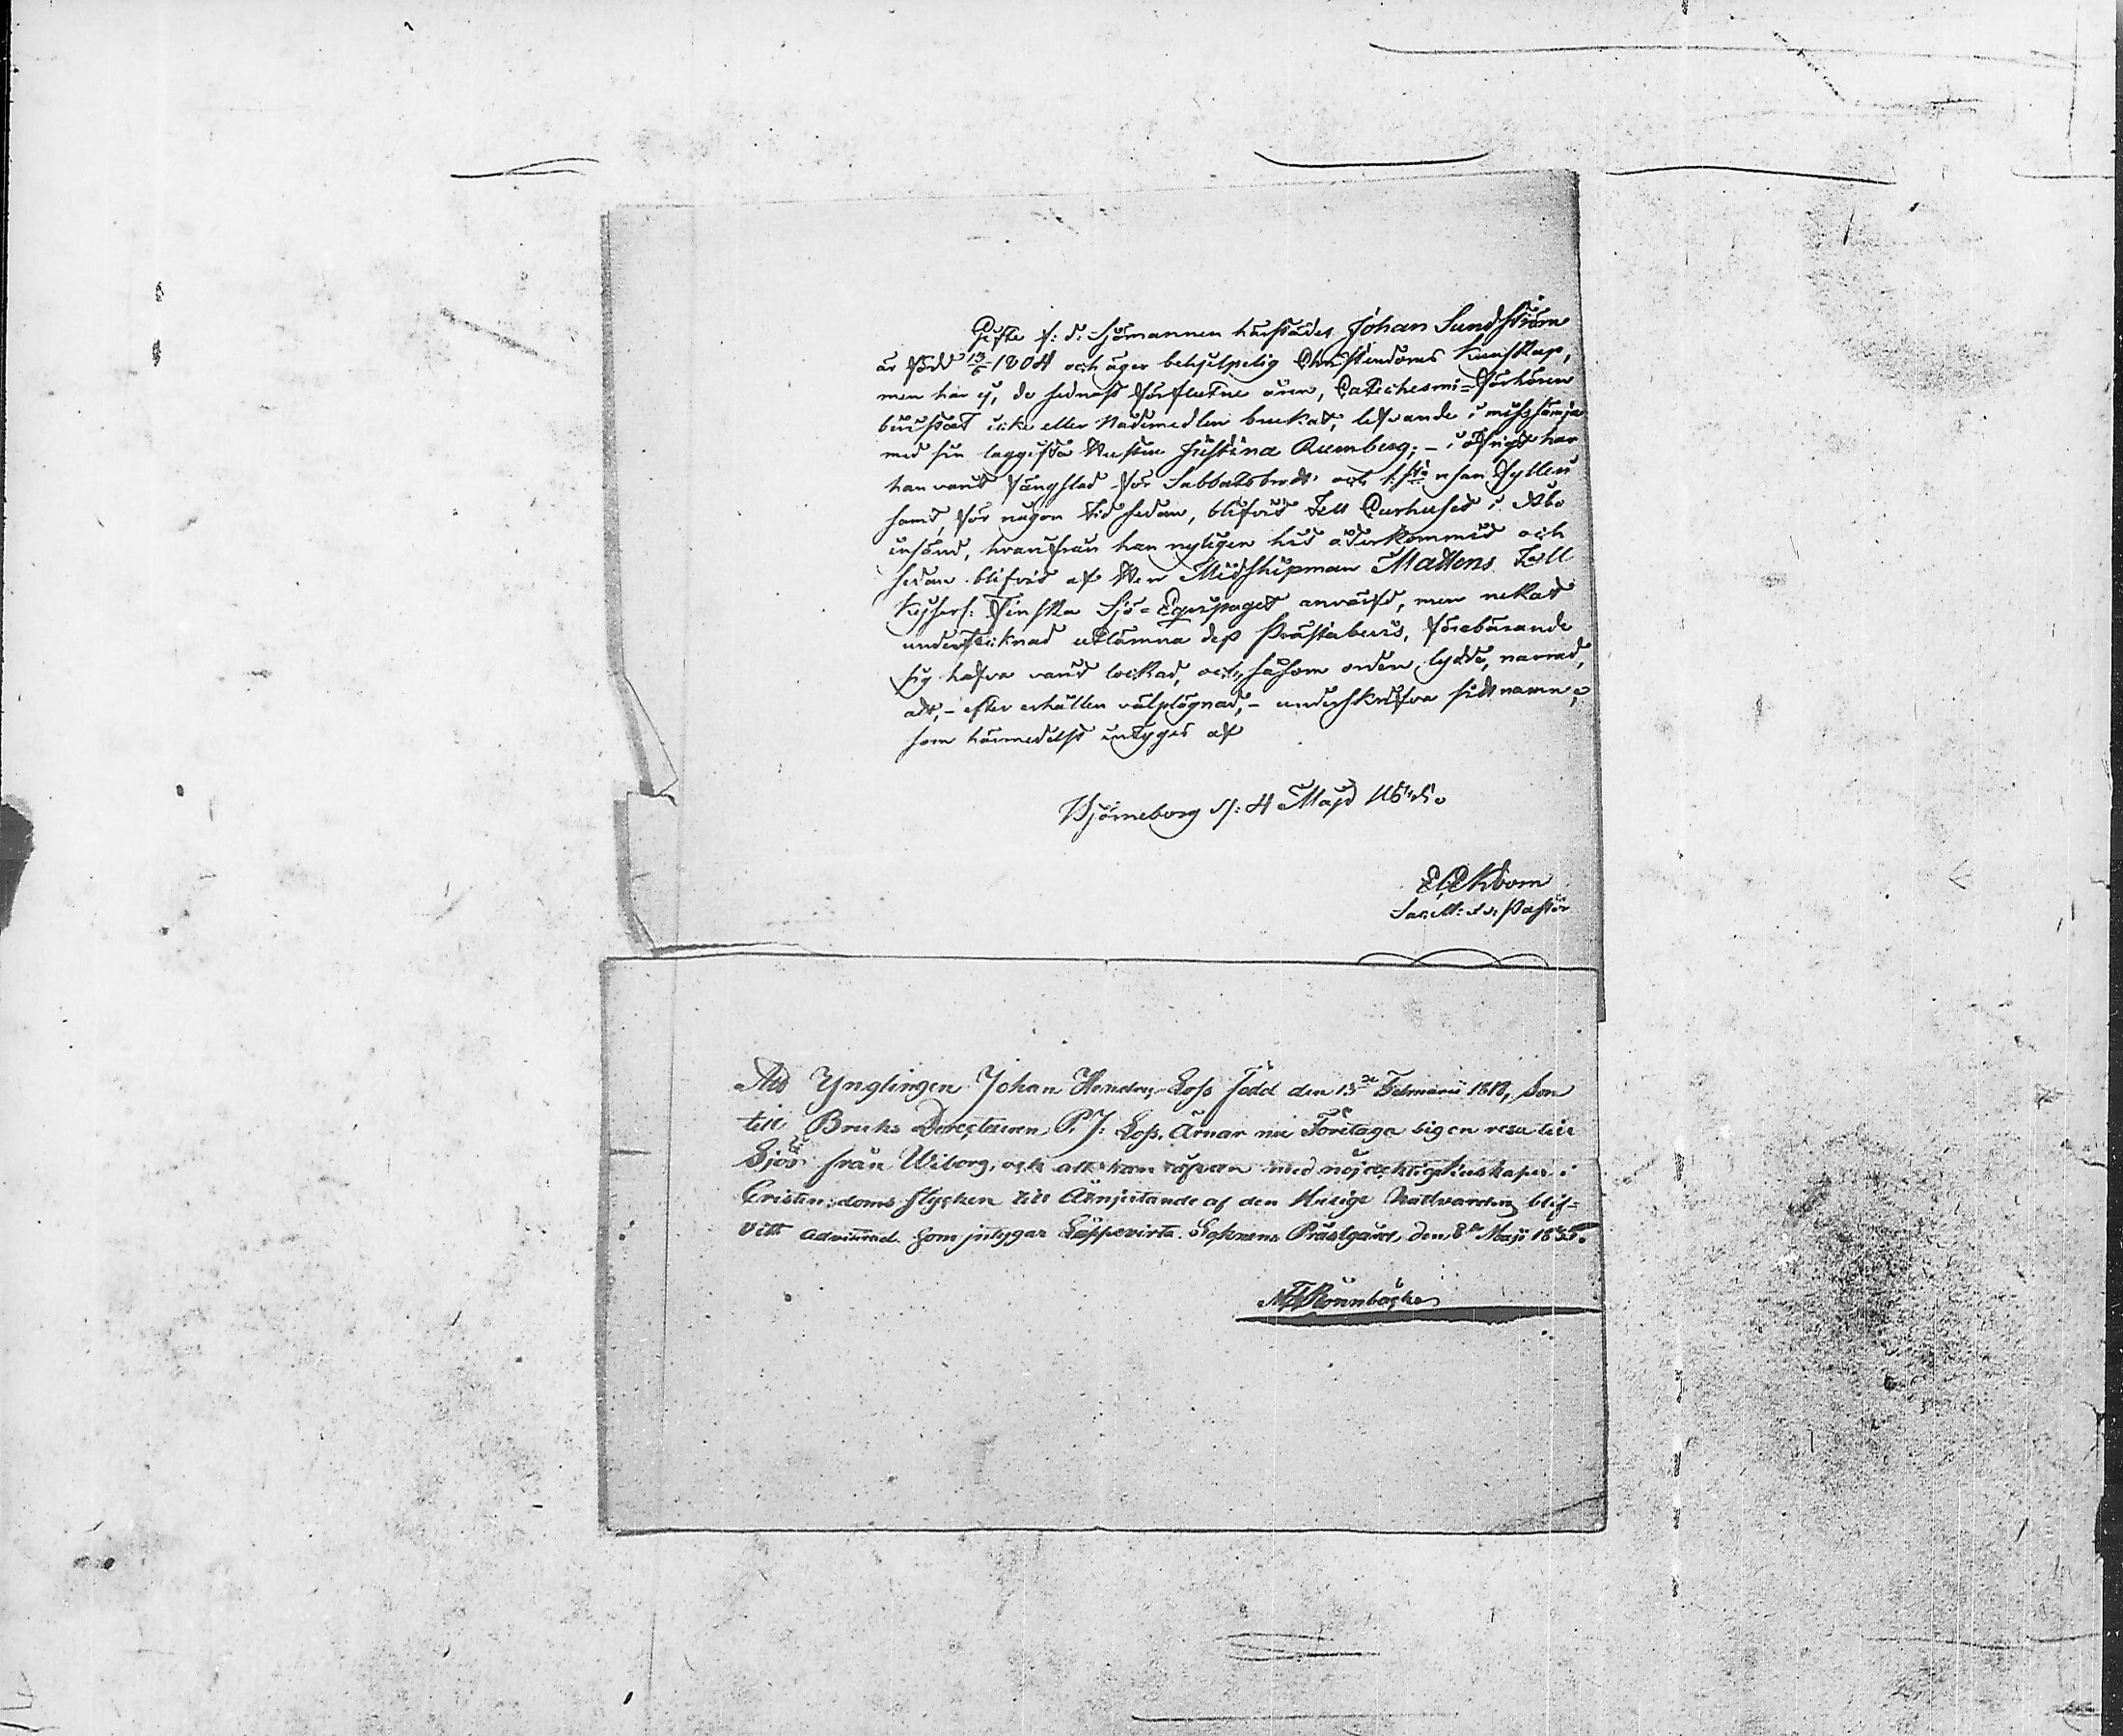 Gifte f: d: Sjömannen härstädes Johan Sundström
är född 13/6 1804 och äger behjelpelig Christendoms kunskap,
men har ej, de sednast förflutne åren, Catechesmi-Förhören
bevistat icke eller Nådemedlen brukat, lefvande i missämja
med sin laggifta Hustru Justina Rumberg; – i öfrigt har
han varit fängslad för Sabbatsbrott och resan fylleri
samt, för någon tid sedan, blifvit till Curhuset i Åbo
insänd, hvarifrån han nyligen hit återkommit och
sedan blifvit af Herr Midshipman Mattens till
Kejserl: Finska Sjö-Equipaget anvärfd, men nekat
undertecknad utlämna dess Prästabevis, förebärande
sig hafva varit lockad, och, såsom orden lydde, narrad,
att, – efter erhållen välplägnad, – underskrifva sitt namn;
som härmedelst intygas af
Björneborg d: 4 Maji
Sac. M: v. Pastor
Att Ynglingen Johan Loss Född den 13de Februarii son
till Bruks Directeuren P. J: Loss, Ärnar nu Företaga sig en resa till
Sjös från Wiborg, och att han äfven med nöjachtig Kuskaper i
Cristendoms stycken till Åtnjutande af den Helige Nattvarden blif-
vitt admitterad som intygar Läppevirta Soknens Prästgård, den 8de Maji
Rönnbäck